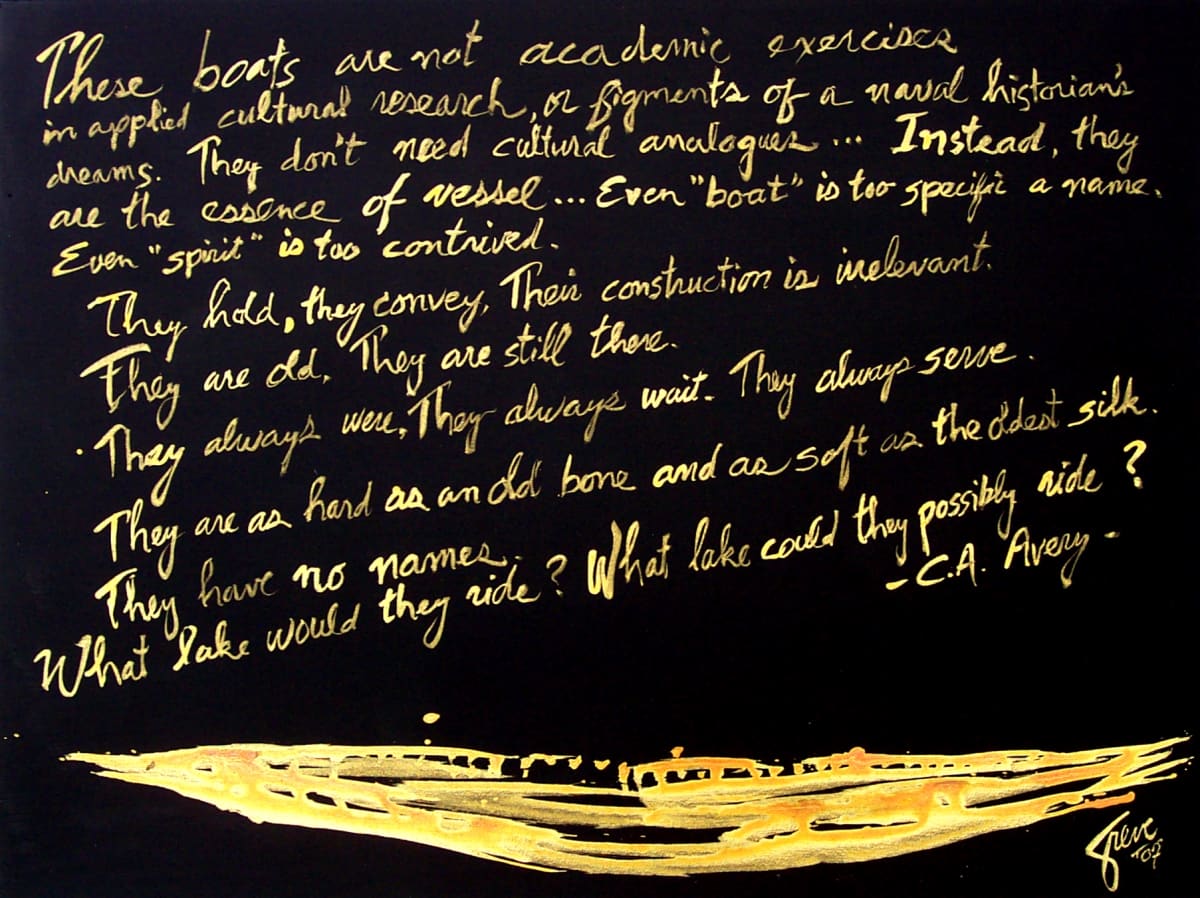 These boats are not academic exercises
in applied cultural research, or figments of a naval historian's
dreams. They don't need cultural analogues... Instead, they
are the essence of vessel... Even "boat" is too specific a name.
Even "spirit" is too contrived.
They hold, they convey, Their construction is irrelevant.
They are old, They are still there.
They always were, They always wait. They always serve.
They are as hard as an old bone and as soft as the oldest silk.
They have no names.
What lake would they ride? What lake could they possibly ride?
-C.A. Avery-
Greve